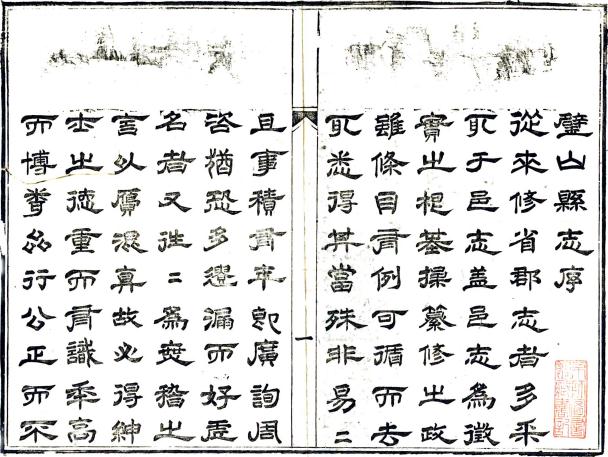 璧山縣志序
從來修省郡志者多采
取于邑志盖邑志爲徵
實之根基操纂修之政
雖條目有例可循而去
取悉得其當殊非易二
一
且事積有年即廣詢周
咨猶恐多遺漏而好虛
名者又往二爲無稽之
言以贗混真故必得紳
士之德重而有識年高
而博品行公正而不